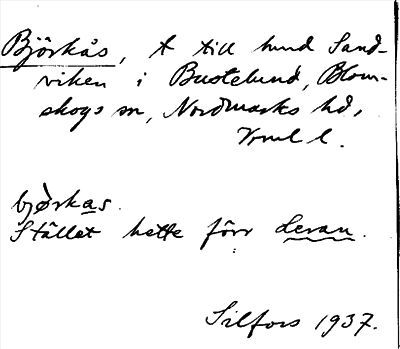 Björkås, t till hmd Sand-
viken i Bustelund, Blom-
skogs sn, Nordmarks hd,
Vrml l.
bjørkas.
Stället hette förr Leran.
Silfors 1937.